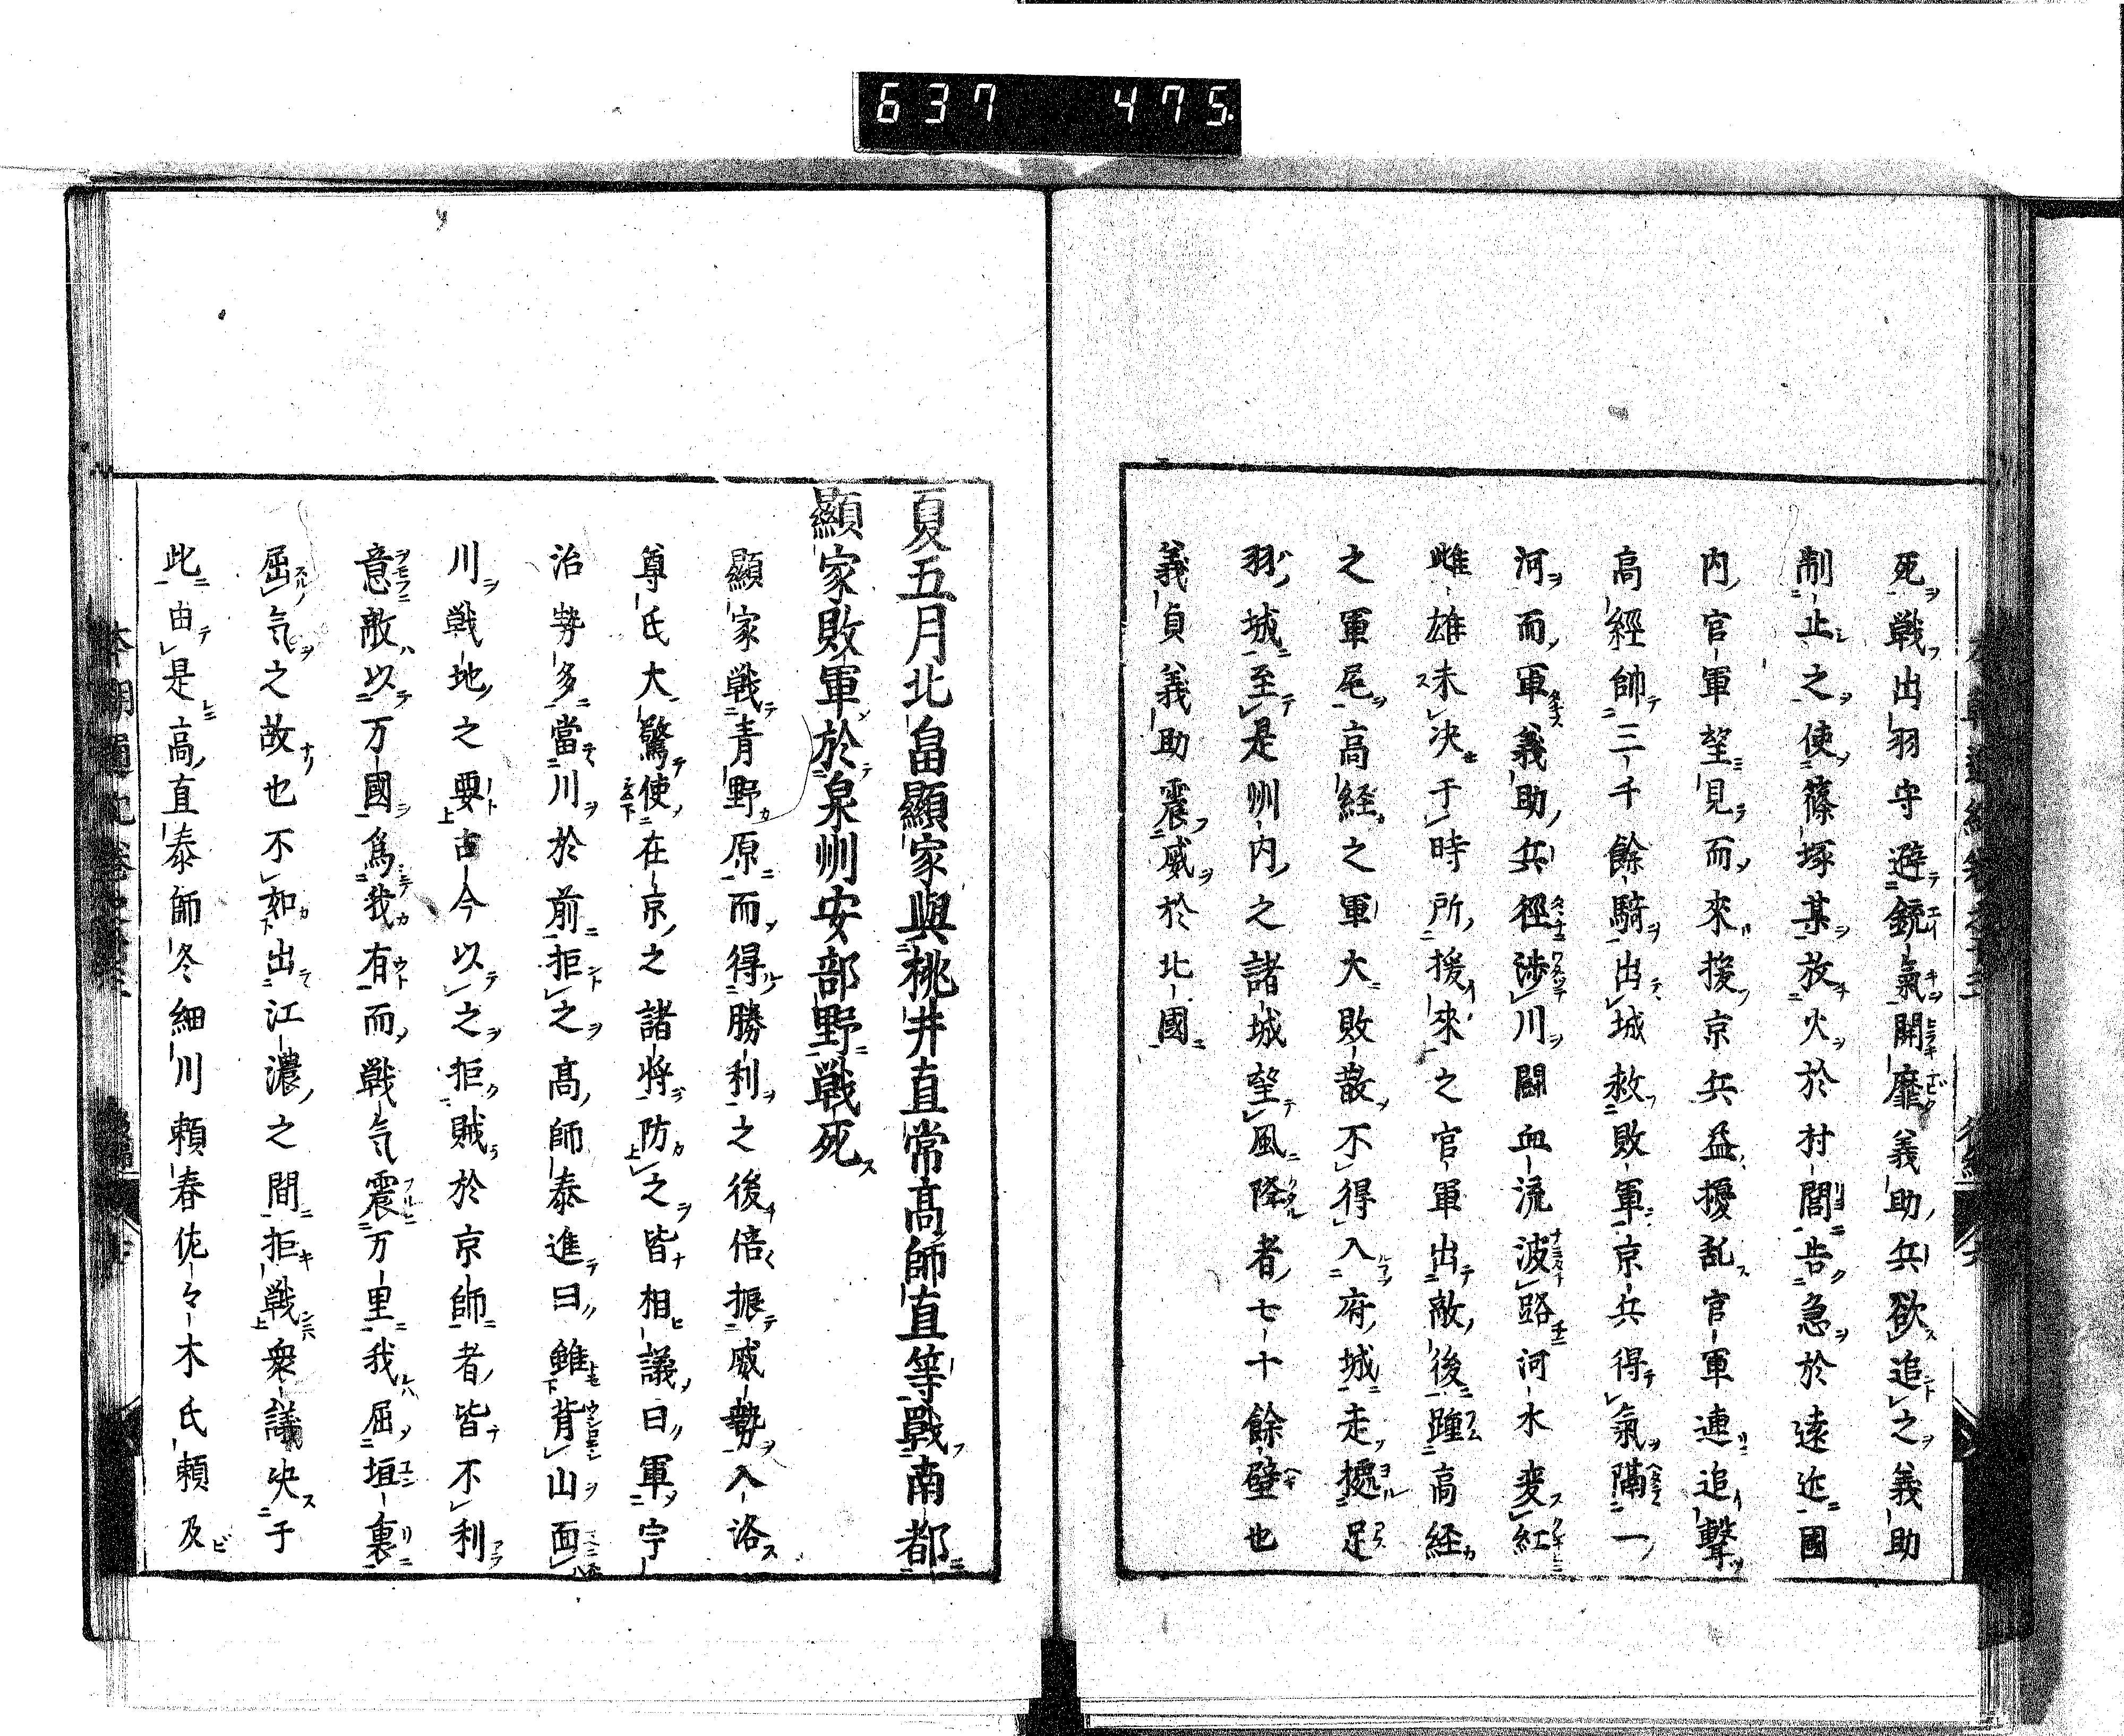 637 475
死戦出羽守避鋭氣開靡義助兵欲追之義助
制止之使篠塚某放火於村閭告急於遠近國
内官軍望見而來援京兵益擾乱官軍連追擊
高經帥三千餘騎出城救敗軍京兵得氣隔一
河而軍義助兵徑渉川闘血流波路河水変紅
雌雄未决于時所援來之官軍出敵後踵高経
之軍尾高経之軍大敗散不得入府城走據足
羽城至是州内之諸城望風降者七十餘壁也
義貞義助震威於北國
夏五月北畠顯家與桃井直常高師直等戰南都
顯家敗軍於泉州安部野戰死
顯家戦青野原而得勝利之後倍振威勢入洛
尊氏大驚使在京之諸將防之皆相議曰軍宇
治勢多當川於前拒之高師泰進曰雖背山面
川戦地之要古今以之拒賊於京師者皆不利
意敵以万國爲我有而戦气震万里我屈垣裏
屈气之故也不如出江濃之間拒戦衆議决于
此由是高直泰師冬細川頼春佐々木氏頼及